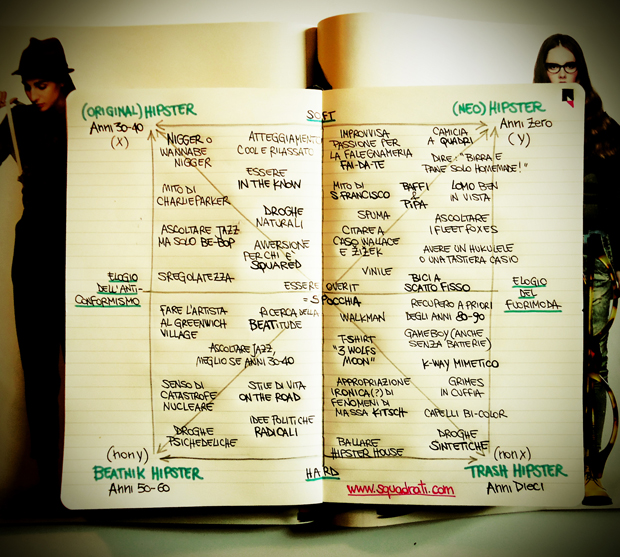 (ORIGINAL) HIPSTER
Anni 30-40
(X)
SOFT
(NEO) HIPSTER
Anni Zero
(Y)
NIGGER O
WANNABE
NIGGER
ATTEGGIAMENTO
COOL E RILASSATO
ESSERE
IN THE KNOW
MITO DI
CHARLIE PARKER
DROGHE
NATURALI
ASCOLTARE JAZZ
MA SOLO BE-BOP
AVVERSIONE
PER CHI È
SQUARED
SREGOLATEZZA
IMPROVVISA
PASSIONE PER
LA FALEGNAMERIA
FAI-DA-TE
CAMICIA
A QUADRI
DIRE: "BIRRA E
PANE SOLO HOMEMADE!"
MITO DI
S. FRANCISCO
BAFFI
E
PIPA
LOMO BEN
IN VISTA
SPUMA
ASCOLTARE
I FLEET FOXES
CITARE A
CASO WALLACE
E ŽIŽEK
AVERE UN HUKULELE
O UNA TASTIERA CASIO
VINILE
BICI A
SCATTO FISSO
ELOGIO
DELL'ANTI-
CONFORMISMO
ESSERE OVER IT
= SPOCCHIA
ELOGIO
DEL
FUORIMODA
FARE L'ARTISTA
AL GREENWICH
VILLAGE
RICERCA DELLA
BEATITUDE
ASCOLTARE JAZZ,
MEGLIO SE ANNI 30-40
SENSO DI
CATASTROFE
NUCLEARE
STILE DI VITA
ON THE ROAD
IDEE POLITICHE
RADICALI
DROGHE
PSICHEDELICHE
WALKMAN
RECUPERO A PRIORI
DEGLI ANNI 80-90
T-SHIRT
"3 WOLFS
MOON"
GAMEBOY (ANCHE
SENZA BATTERIE)
K-WAY MIMETICO
APPROPRIAZIONE
IRONICA (?) DI
FENOMENI DI
MASSA KITSCH
GRIMES
IN CUFFIA
CAPELLI BI-COLOR
BALLARE
HIPSTER HOUSE
DROGHE
SINTETICHE
(non y)
BEATNIK HIPSTER
Anni 50-60
HARD
www.squadrati.com
(non x)
TRASH HIPSTER
Anni Dieci